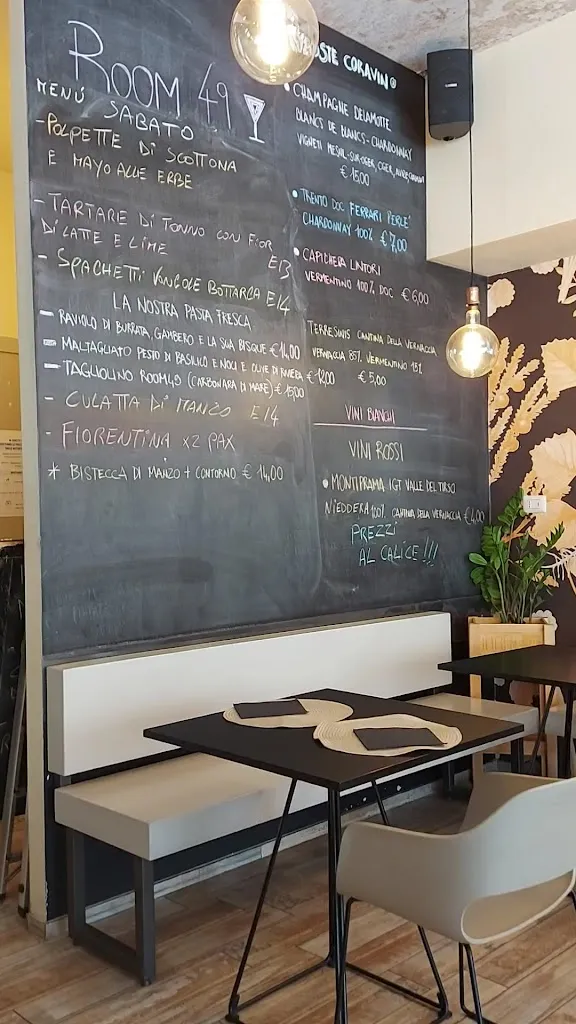 ROOM 49
MENÚ SABATO
- POLPETTE DI SCOTTONA
E MAYO ALLE ERBE
- TARTARE DI TONNO CON FIOR
DI LATTE E LIME E13
- SPAGHETTI VONGOLE BOTTARGA E14
LA NOSTRA PASTA FRESCA
- RAVIOLO DI BURRATA, GAMBERO E LA SUA BISQUE € 14,00
- MALTAGLIATO PESTO DI BASILICO E NOCI E OLIVE DI RIVIERA € 12,00
- TAGLIOLINO ROOM49 (CARBONARA DI MARE) € 15,00
- CULATTA DI MANZO E14
- FIORENTINA X2 PAX
* BISTECCA DI MANZO + CONTORNO € 14,00
CORAVIN®
• CHAMPAGNE DELAMOTTE
BLANCS DE BLANCS - CHARDONNAY
VIGNETI MESNIL-SUR-OGER, OGER,
€ 15,00
• TRENTO DOC FERRARI PERLÉ
CHARDONNAY 100% € 7,00
• CAPICHERA LINTORI
VERMENTINO 100% DOC € 6,00
TERRESINIS CANTINA DELLA VERNACCIA
VERNACCIA 85% VERMENTINO 15%
€ 5,00
VINI BIANCHI
VINI ROSSI
• MONTIPRAMA IGT VALLE DEL TIRSO
NIEDDERA 100% CANTINA DELLA VERNACCIA € 4,00
PREZZI
AL CALICE!!!